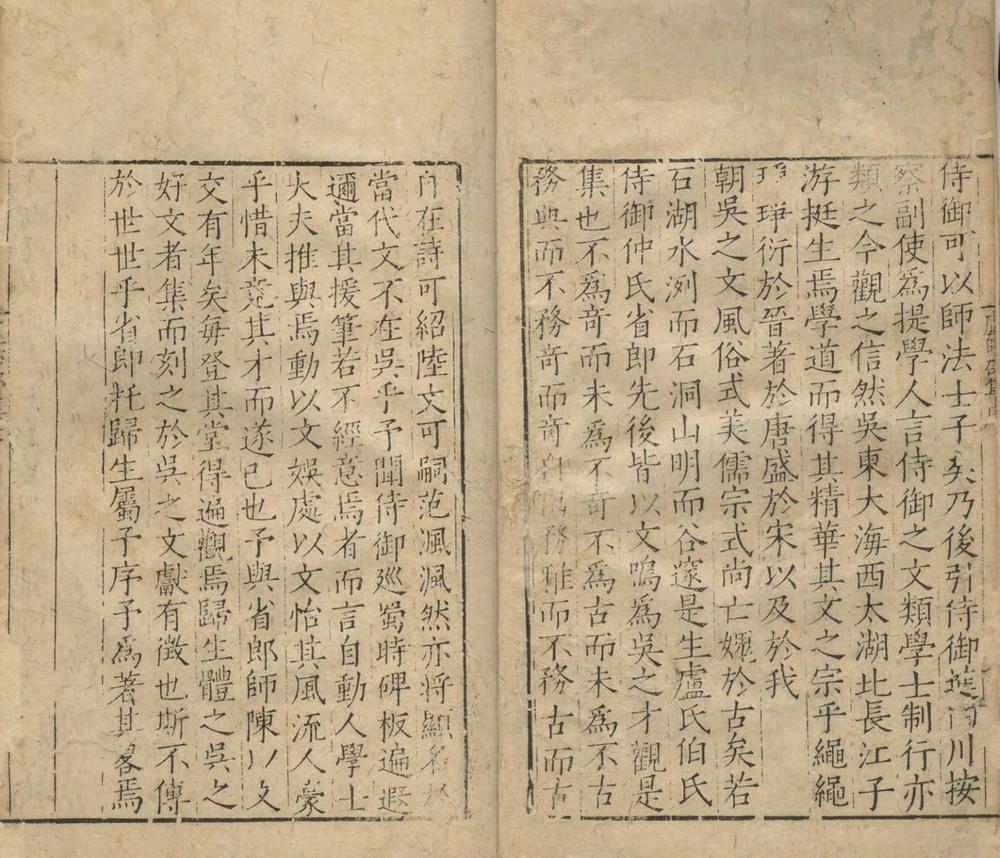 侍御可以師法士子矣乃後引侍御進四川按
察副使為提學人言侍御之文類學士制行亦
類之今觀之信然吳東大海西太湖北長江子
游挺生焉學道而得其精華其文之宗乎繩繩
琤琤衍於晉著於唐盛於宋以及於我
朝吳之文風俗式美儒宗式尚亡媿於古矣若
石湖水冽而石洞山明而谷邃是生盧氏伯氏
侍御仲氏省郎先後皆以文鳴為吳之才觀是
集也不為奇而未為不奇不為古而未為不古
務典而不務奇而奇自 務雅而不務古而古
自在詩可紹陸文可嗣范渢渢然亦將顯名於
當代文不在吳乎予聞侍御廵蜀時碑板遍遐
邇當其援筆若不經意焉者而言自動人學士
大夫推與焉動以文娛處以文怡其風流人豪
乎惜未竟其才而遂已也予與省郎師陳以文
交有年矣每登其堂得遍觀焉歸生體之吳之
好文者集而刻之於吳之文獻有徵也斯不傳
於世世乎省郎托歸生屬予序予為著其畧焉